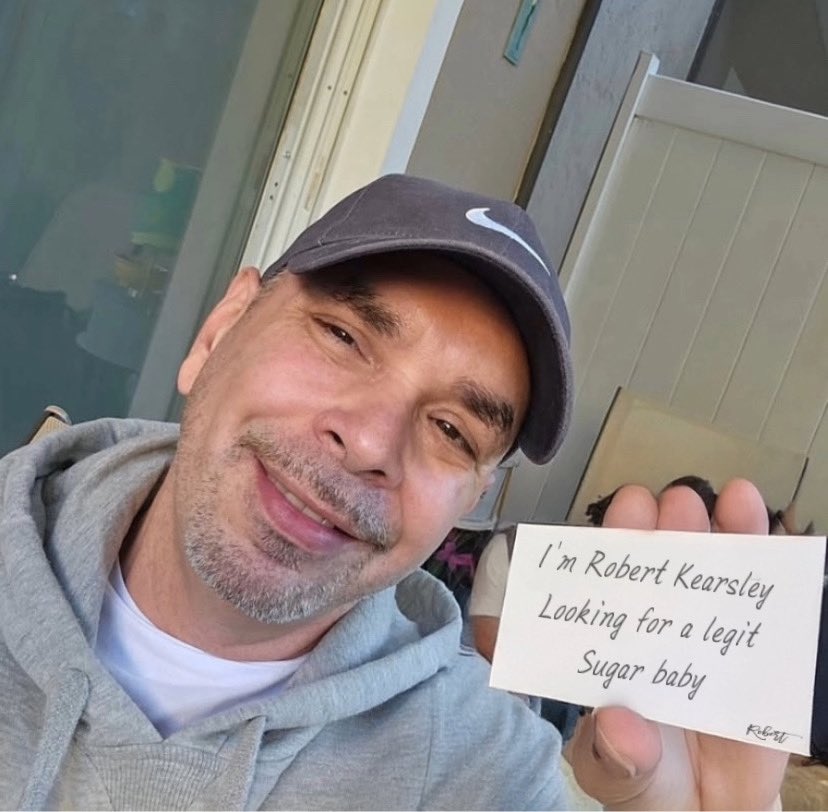 I'm Robert Kearsley
Looking for a legit
Sugar baby
Robert